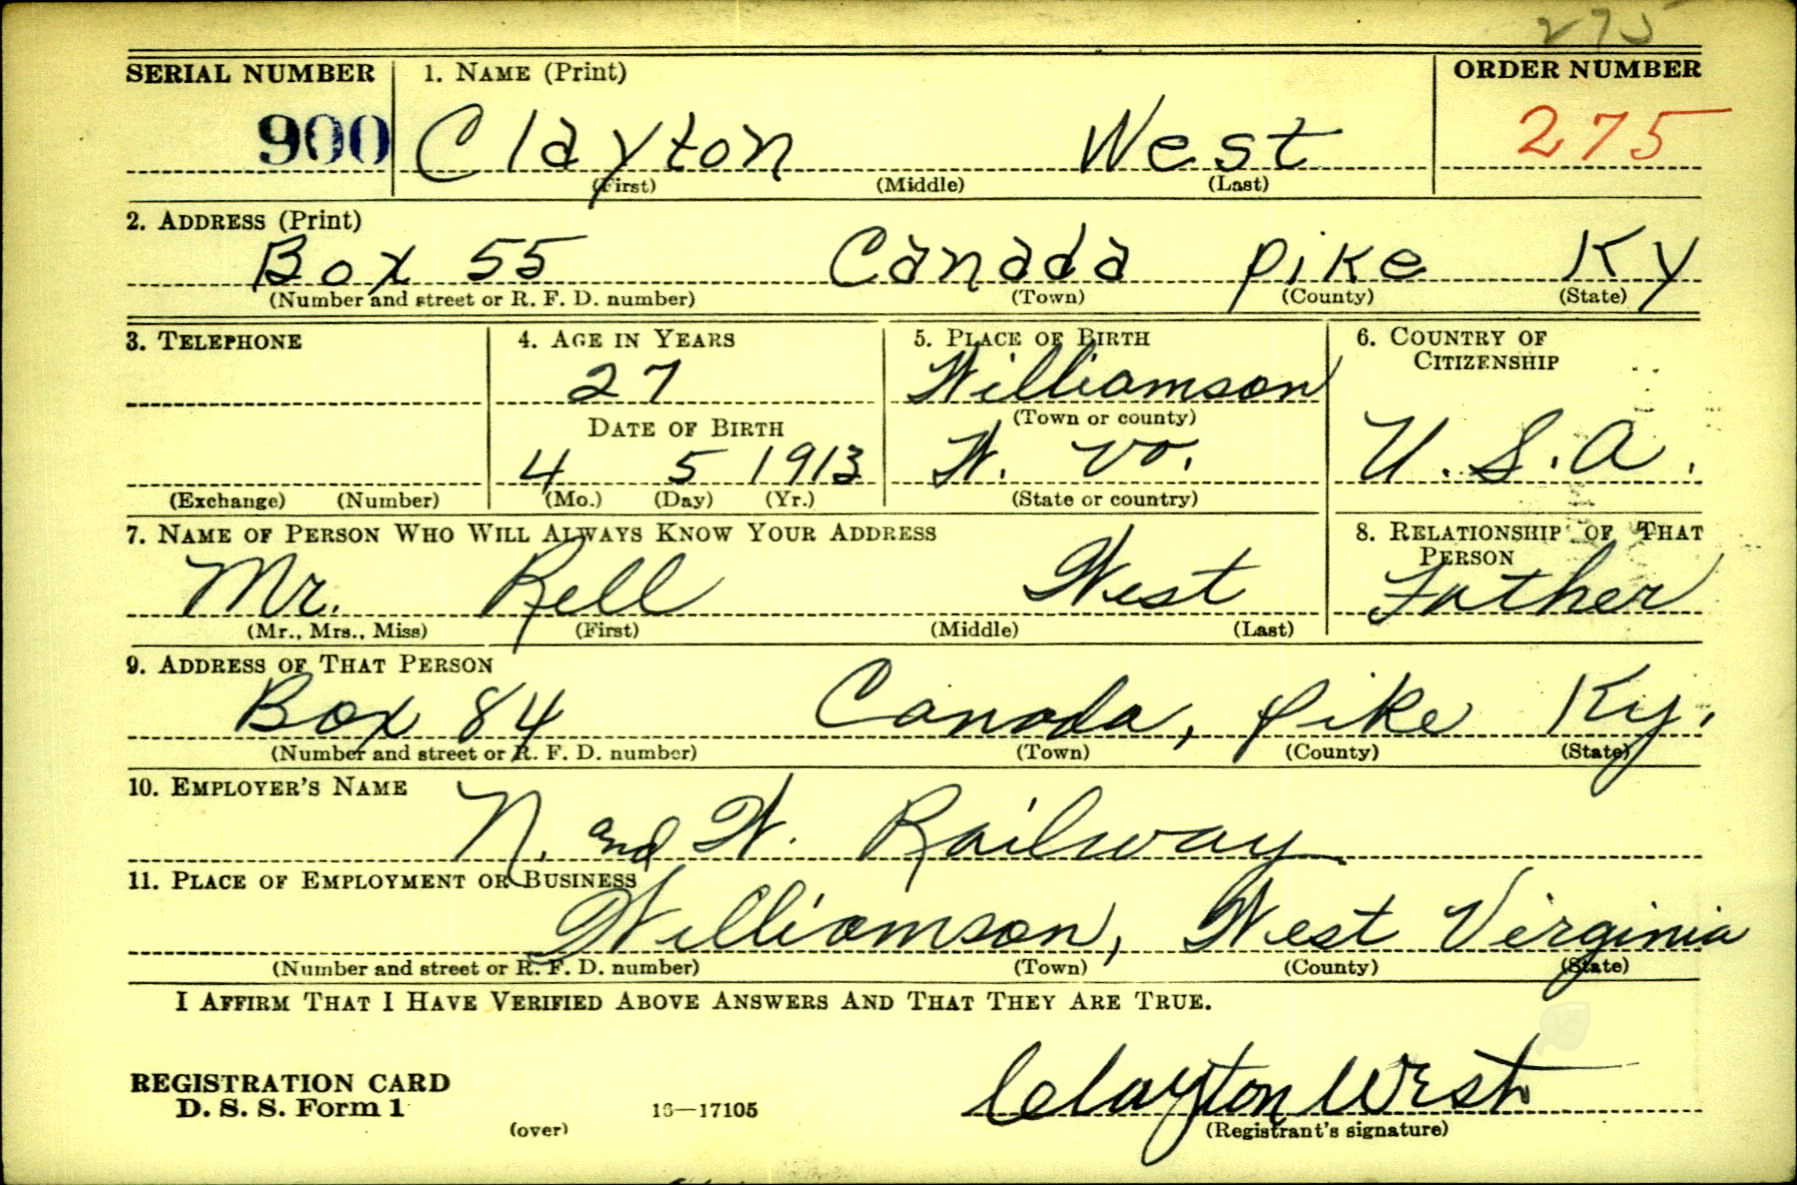 275
SERIAL NUMBER 1. NAME (Print) ORDER NUMBER
900 Clayton West 275
(First) (Middle) (Last)
2. ADDRESS (Print)
Box 55 Canada Pike Ky
(Number and street or R. F. D. number) (Town) (County) (State)
3. TELEPHONE 4. AGE IN YEARS 5. PLACE OF BIRTH 6. COUNTRY OF
CITIZENSHIP
27 Williamson
(Town or county)
DATE OF BIRTH
4 5 1913 W. Va. U. S. A.
(Exchange) (Number) (Mo.) (Day) (Yr.) (State or country)
7. NAME OF PERSON WHO WILL ALWAYS KNOW YOUR ADDRESS 8. RELATIONSHIP OF THAT
PERSON
Mr. Rell West Father
(Mr., Mrs., Miss) (First) (Middle) (Last)
9. ADDRESS OF THAT PERSON
Box 84 Canada, Pike Ky.
(Number and street or R. F. D. number) (Town) (County) (State)
10. EMPLOYER'S NAME
N. and W. Railway
11. PLACE OF EMPLOYMENT OR BUSINESS
Williamson, West Virginia
(Number and street or R. F. D. number) (Town) (County) (State)
I AFFIRM THAT I HAVE VERIFIED ABOVE ANSWERS AND THAT THEY ARE TRUE.
REGISTRATION CARD
D. S. S. Form 1 16—17105 Clayton West
(over) (Registrant's signature)